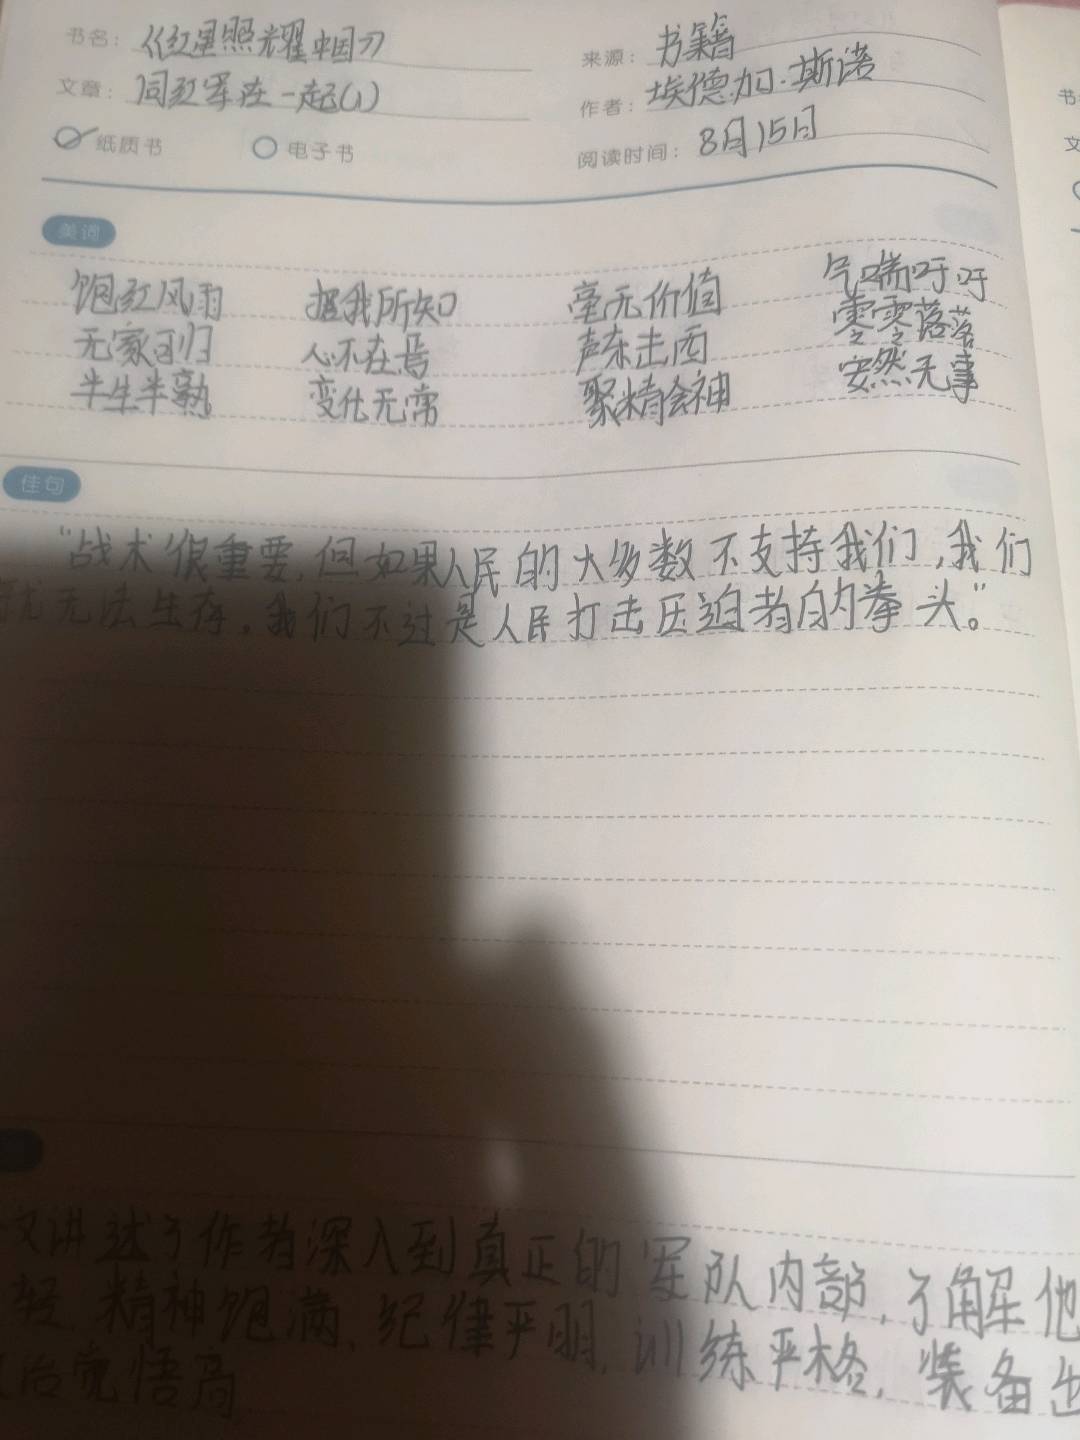 书名：《红星照耀中国》
来源：书籍
文章：同红军在一起(1)
作者：埃德加·斯诺
纸质书 电子书
阅读时间：8月15日
美词
饱经风雨 据我所知 毫无价值 气喘吁吁
无家可归 心不在焉 声东击西 零零落落
半生半熟 变化无常 聚精会神 安然无事
佳句
“战术很重要，但如果人民的大多数不支持我们，我们
就无法生存，我们不过是人民打击压迫者的拳头。”
文讲述了作者深入到真正的军队内部，了解他
轻，精神饱满，纪律严明，训练严格，装备
治觉悟高